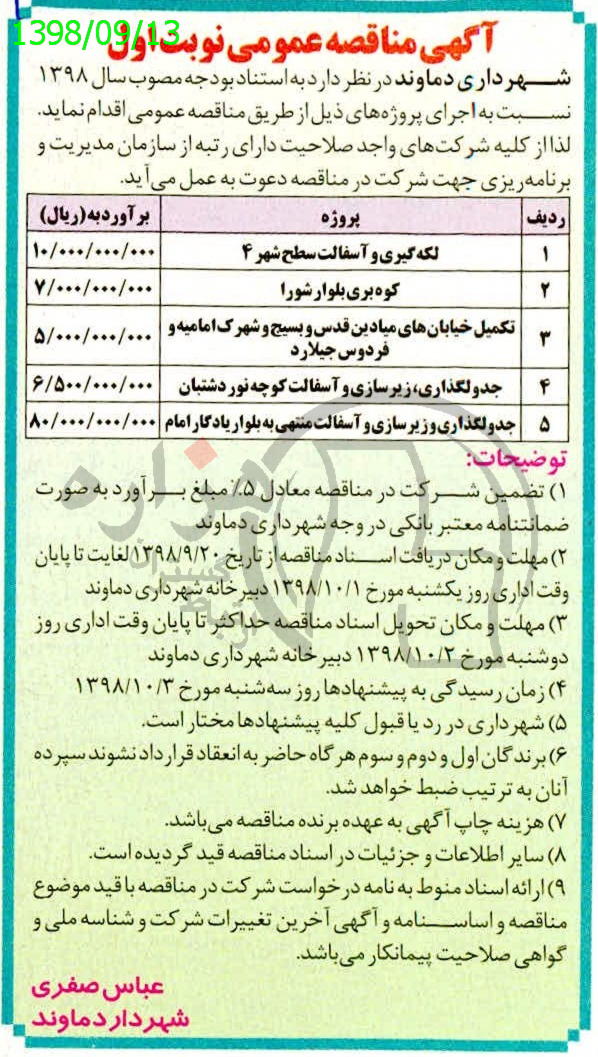 1398/09/13
آگهی مناقصه عمومی نوبت اول
شهرداری دماوند در نظر دارد به استناد بودجه مصوب سال ۱۳۹۸
نسبت به اجرای پروژه‌های ذیل از طریق مناقصه عمومی اقدام نماید.
لذا از کلیه شرکت‌های واجد صلاحیت دارای رتبه از سازمان مدیریت و
برنامه‌ریزی جهت شرکت در مناقصه دعوت به عمل می‌آید.
ردیف پروژه برآورد به (ریال)
۱ لکه گیری و آسفالت سطح شهر ۴ ۱۰/۰۰۰/۰۰۰/۰۰۰
۲ کوه بری بلوار شورا ۷/۰۰۰/۰۰۰/۰۰۰
۳ تکمیل خیابان های میادین قدس و بسیج و شهرک امامیه و
فردوس جیلارد ۵/۰۰۰/۰۰۰/۰۰۰
۴ جدولگذاری، زیرسازی و آسفالت کوچه نور دشتبان ۶/۵۰۰/۰۰۰/۰۰۰
۵ جدولگذاری و زیرسازی و آسفالت منتهی به بلوار یادگار امام ۸۰/۰۰۰/۰۰۰/۰۰۰
توضیحات:
۱) تضمین شرکت در مناقصه معادل ۵٪ مبلغ برآورد به صورت
ضمانتنامه معتبر بانکی در وجه شهرداری دماوند
۲) مهلت و مکان دریافت اسناد مناقصه از تاریخ ۱۳۹۸/۹/۲۰ لغایت تا پایان
وقت اداری روز یکشنبه مورخ ۱۳۹۸/۱۰/۱ دبیرخانه شهرداری دماوند
۳) مهلت و مکان تحویل اسناد مناقصه حداکثر تا پایان وقت اداری روز
دوشنبه مورخ ۱۳۹۸/۱۰/۲ دبیرخانه شهرداری دماوند
۴) زمان رسیدگی به پیشنهادها روز سه‌شنبه مورخ ۱۳۹۸/۱۰/۳
۵) شهرداری در رد یا قبول کلیه پیشنهادها مختار است.
۶) برندگان اول و دوم و سوم هرگاه حاضر به انعقاد قرارداد نشوند سپرده
آنان به ترتیب ضبط خواهد شد.
۷) هزینه چاپ آگهی به عهده برنده مناقصه می‌باشد.
۸) سایر اطلاعات و جزئیات در اسناد مناقصه قید گردیده است.
۹) ارائه اسناد منوط به نامه درخواست شرکت در مناقصه با قید موضوع
مناقصه و اساسنامه و آگهی آخرین تغییرات شرکت و شناسه ملی و
گواهی صلاحیت پیمانکار می‌باشد.
عباس صفری
شهردار دماوند